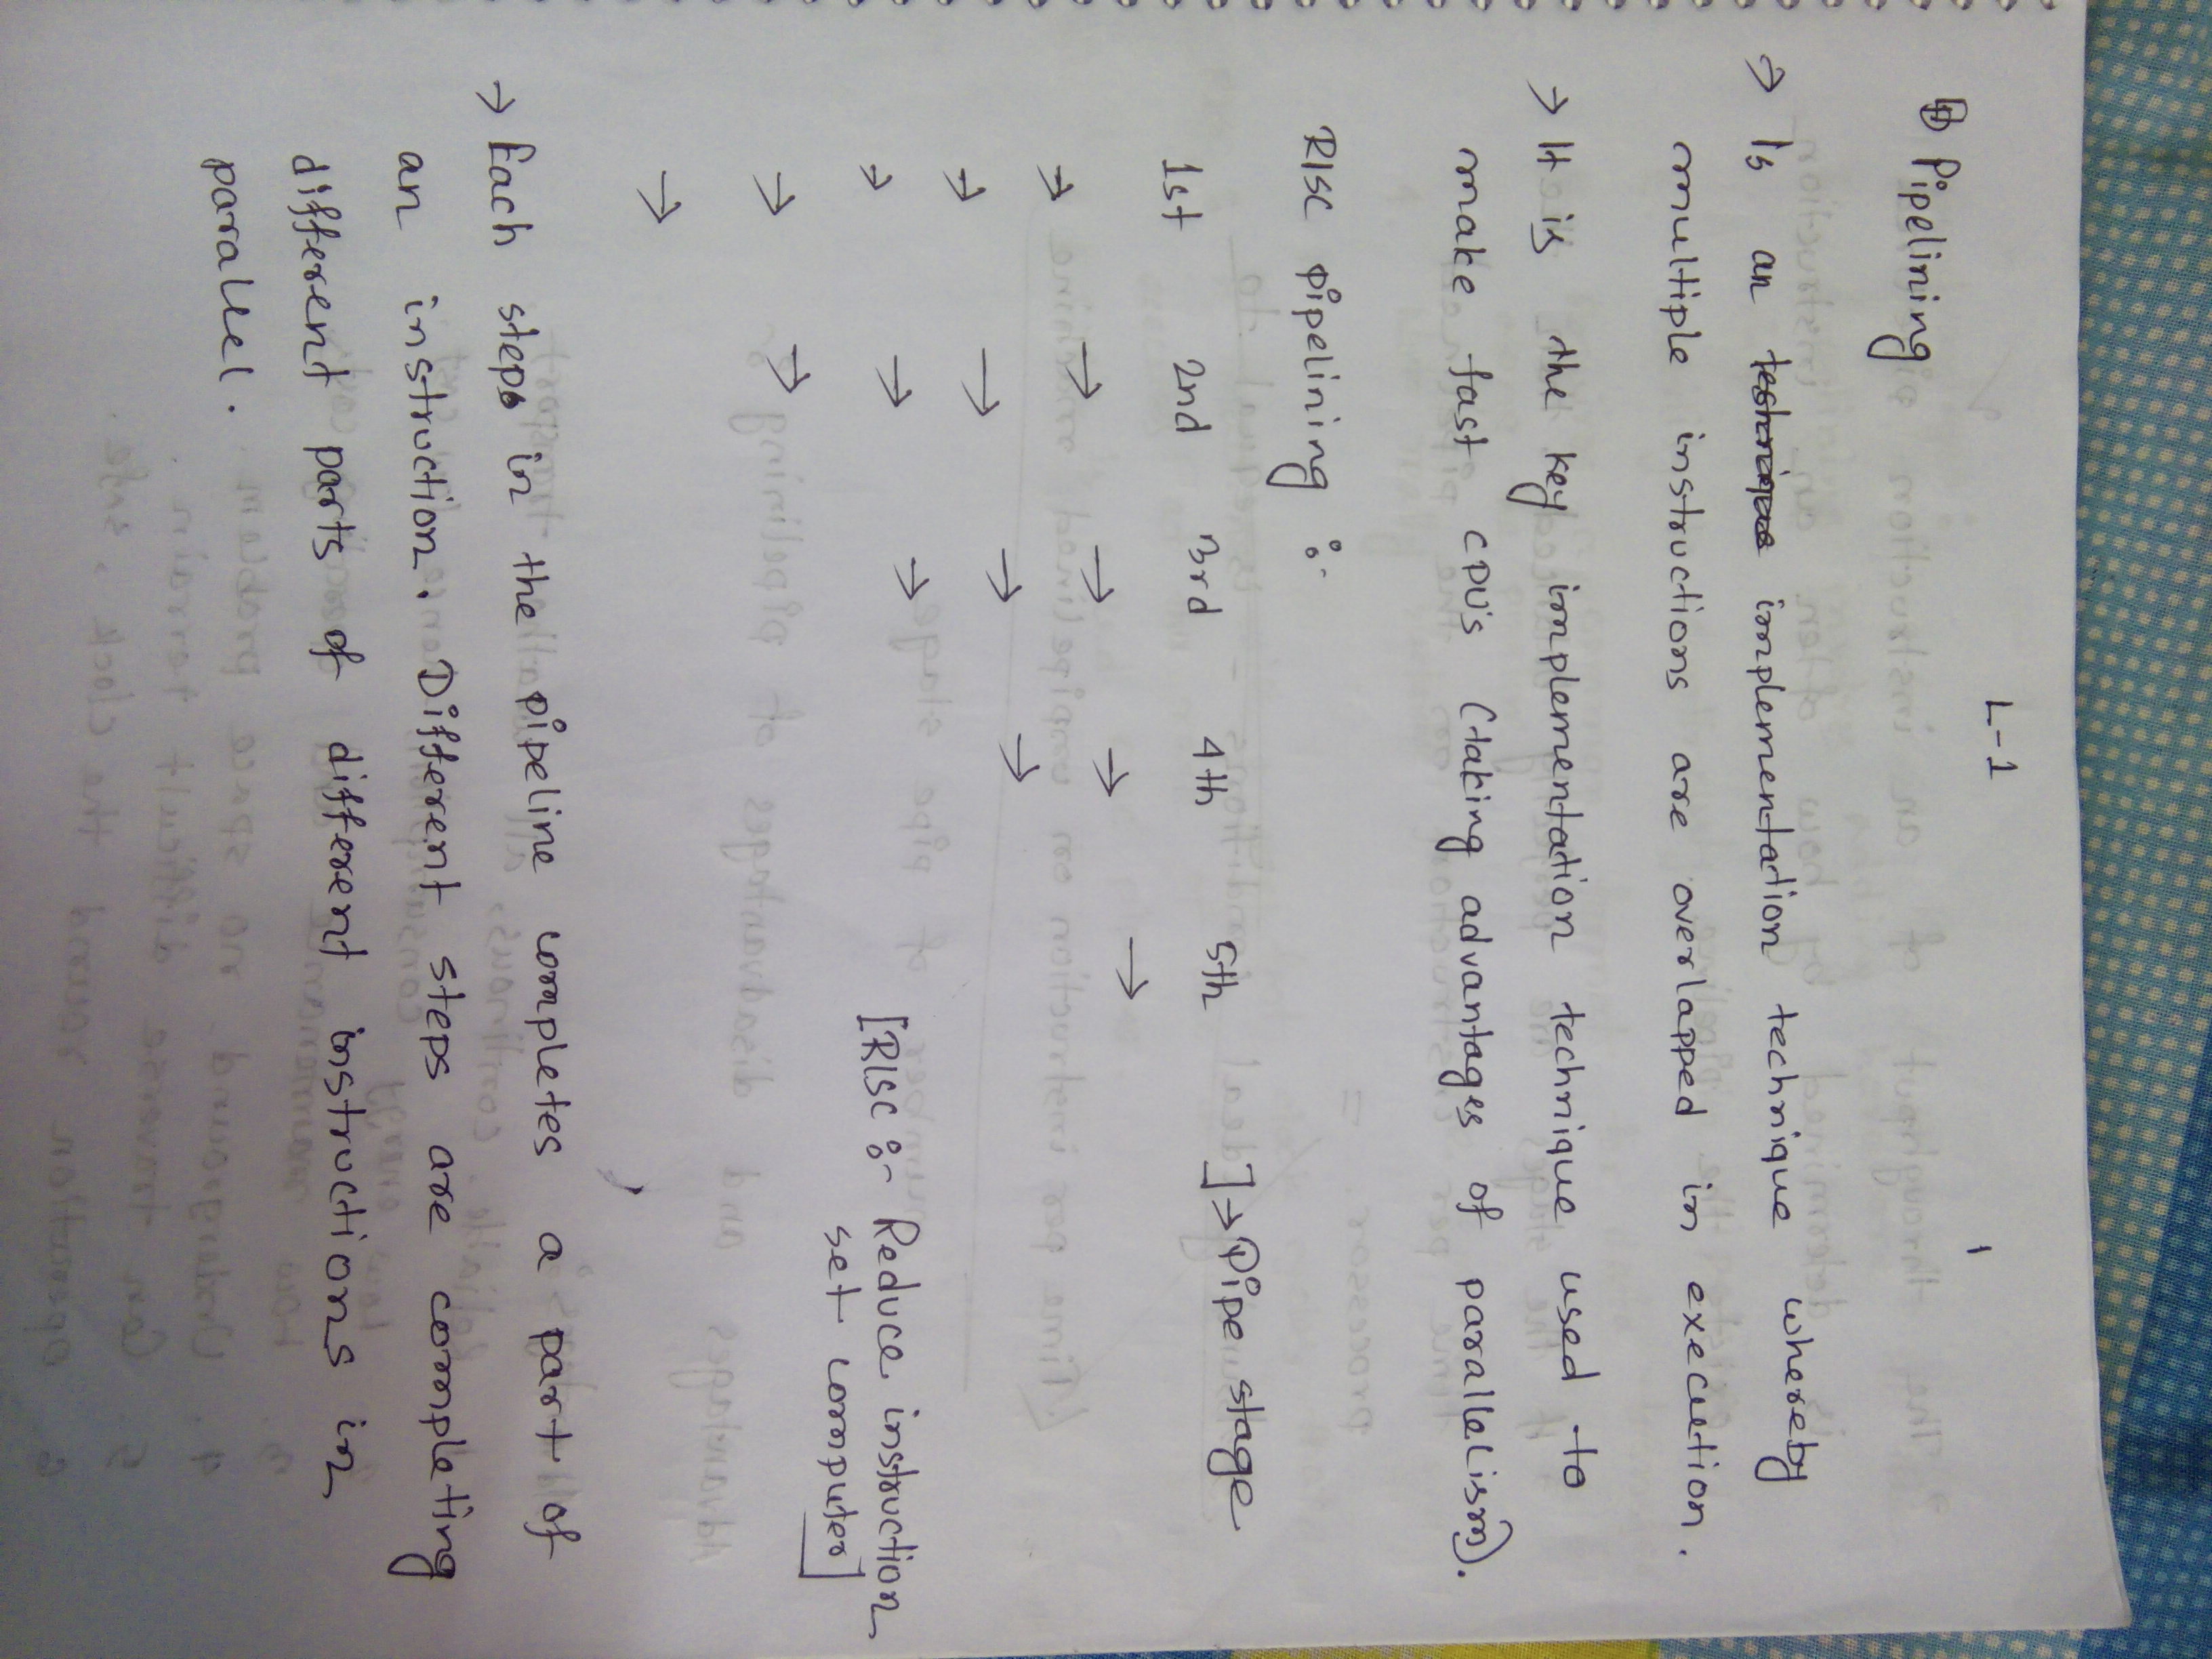 L-1
1
Pipelining
→ Is an technique implementation technique whereby
multiple instructions are overlapped in execution.
→ It is the key implementation technique used to
make fast CPU's (taking advantages of parallelism).
RISC pipelining :-
1st 2nd 3rd 4th 5th ]→ Pipe stage
→ → → → →
→ → → →
→ → →
[RISC :- Reduce instruction
set computer]
→ →
→
→ Each steps in the pipeline completes a part of
an instruction. Different steps are completing
different parts of different instructions in
parallel.